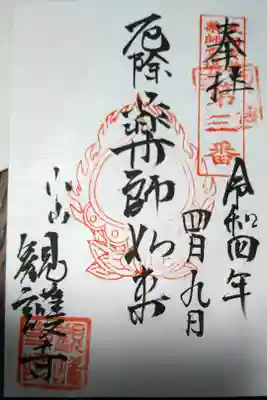 奉拝
第三番
令和四年
四月九日
厄除薬師如来
小山
観護寺